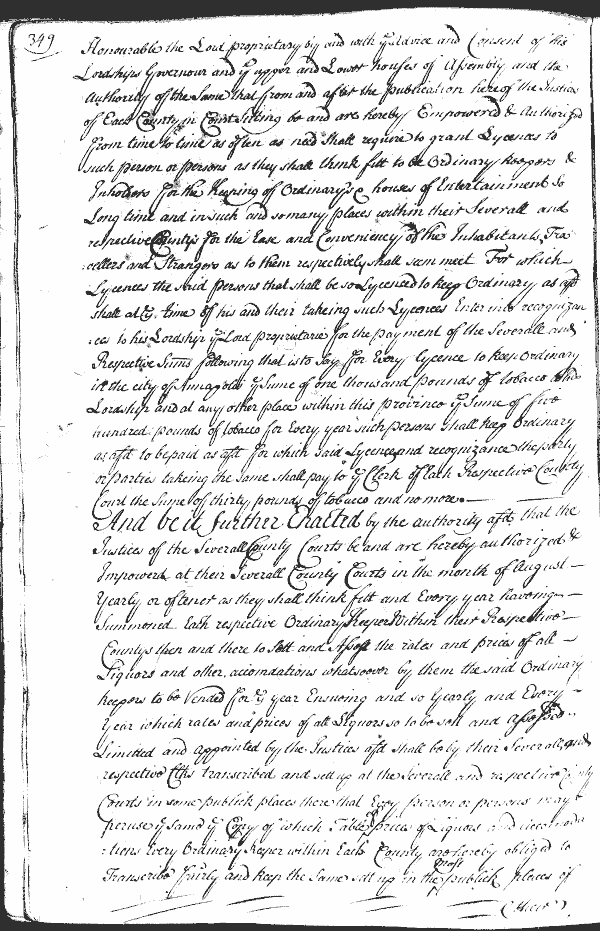 349
Honourable the Lord proprietary by and with ye advice and Consent of his
Lordships Governour and ye upper and Lower houses of Assembly and the
Authority of the Same that from and after the publication hereof the Justices
of Each County in Court Sitting be and are hereby Empowered & Authorized
from time to time as often as need shall require to grant Lycences to
such person or persons as they shall think fitt to be Ordinary keepers &
Inholders for the keeping of Ordinarys & houses of Entertainment so
Long time and in such and so many places within their Severall and
respective Countys for the Ease and Conveniency of the Inhabitants, Tra
vellers and Strangers as to them respectively shall seem meet For which
Lycences the said persons that shall be so Lycenced to keep Ordinary as afd
shall at ye time of his and their takeing such Lycences Enter into recognizan
ces to his Lordship ye Lord proprietarie for the payment of the Severall and
Respective Sums following that is to Say for Every lycence to keep Ordinary
in the city of Annapolis ye Sume of one thousand pounds of tobacco to his
Lordship and at any other place within this province ye Sume of five
hundred pounds of tobacco for Every year such persons shall keep Ordinary
as afd to be paid as afd for which said Lycence and recognizance the party
or parties takeing the Same shall pay to ye Clerk of Each Respective County
Court the Sume of thirty pounds of tobacco and no more.
And be it further Enacted by the authority afd that the
Justices of the Severall County Courts be and are hereby authorized &
Impowerd at their Severall County Courts in the month of August
Yearly or oftener as they shall think fitt and Every year haveing
Summoned Each respective Ordinary Keeper Within their Respective
Countys then and there to Sett and Assess the rates and prices of all
Liquors and other accomdations whatsoever by them the said Ordinary
keepers to be Vended for ye year Ensueing and so Yearly and Every
Year which rates and prices of all Liquors so to be sett and assessed
Limitted and appointed by the Justices afd shall be by their Severall and
respective Clks transcribed and sett up at the Severall and respective County
Courts in some publick places there that Every person or persons may
peruse ye Same ye Copy of which Table of prices of Liquors and accomoda
tions Every Ordinary Keeper within Each County are hereby obliged to
Transcribe fairly and keep the Same sett up in the most publick places of
their